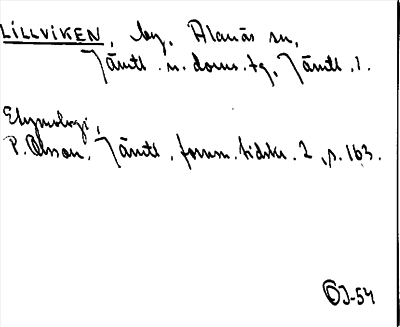 LILLVIKEN, by, Alanäs sn,
Jämtl. n. doms. tg, Jämtl. l.
Etymologi,
P. Olsson, Jämtl. fornm. tidskr. 2, s. 163.
ÖJ-54